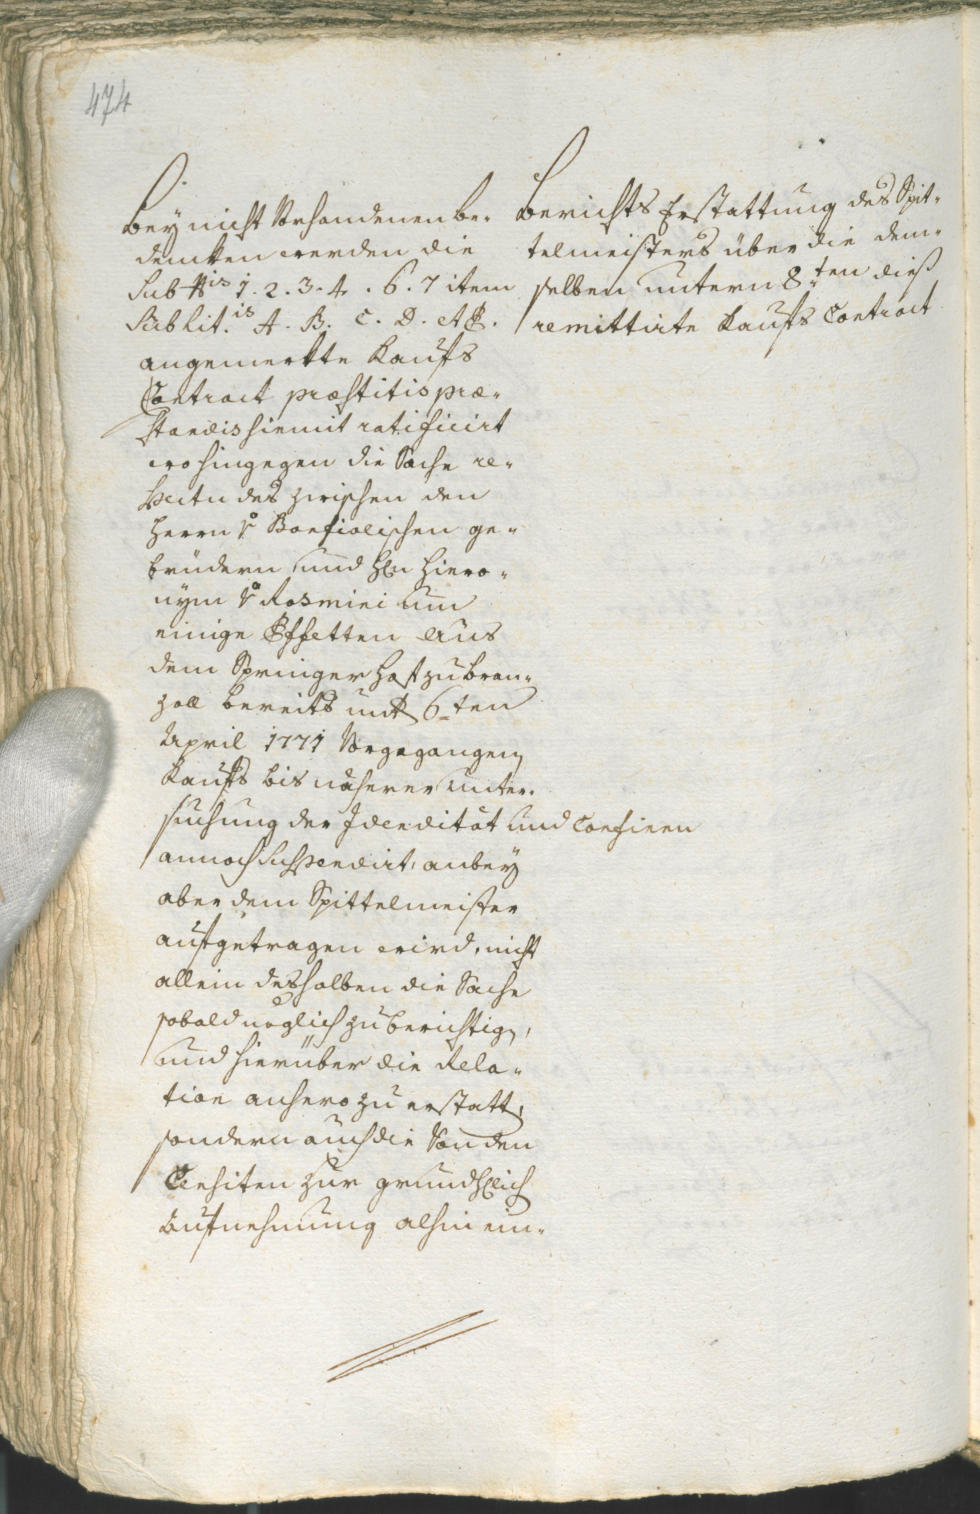 474
Bey nicht Vorhandenen be-
denkken werden die
Sub Nris 1. 2. 3. 4. 6. 7 item
Sub Lit.is A. B. C. D. et E.
angemerkte Kaufs
Contract præstitis præ-
standis hiemit ratificirt
wo hingegen die Sache re-
spectu des zwischen den
Herrn v Bonfiolischen ge-
brüdern und Hln Hiero-
nÿm v Rosmini um
einige Effetten aus
dem Springer Hof zu Bran-
zoll bereits unt 6ten
April 1771 Vorgegangen
Kaufs bis näherer unter-
suchung der Idendität und Confinen
annoch Suspendirt, anbeÿ
aber dem Spittelmeister
aufgetragen wird, nicht
allein deshalben die Sache
sobald möglich zu berichtig,
und hierüber die Rela-
tion anhero zu erstatt,
sondern auch die Von den
Censiten zur grundtlich
Aufnehmung alhin ein-
Berichts Erstattung des Spit-
telmeisters über die dem-
selben untern 8ten dieß
remittirte Kaufs Contract